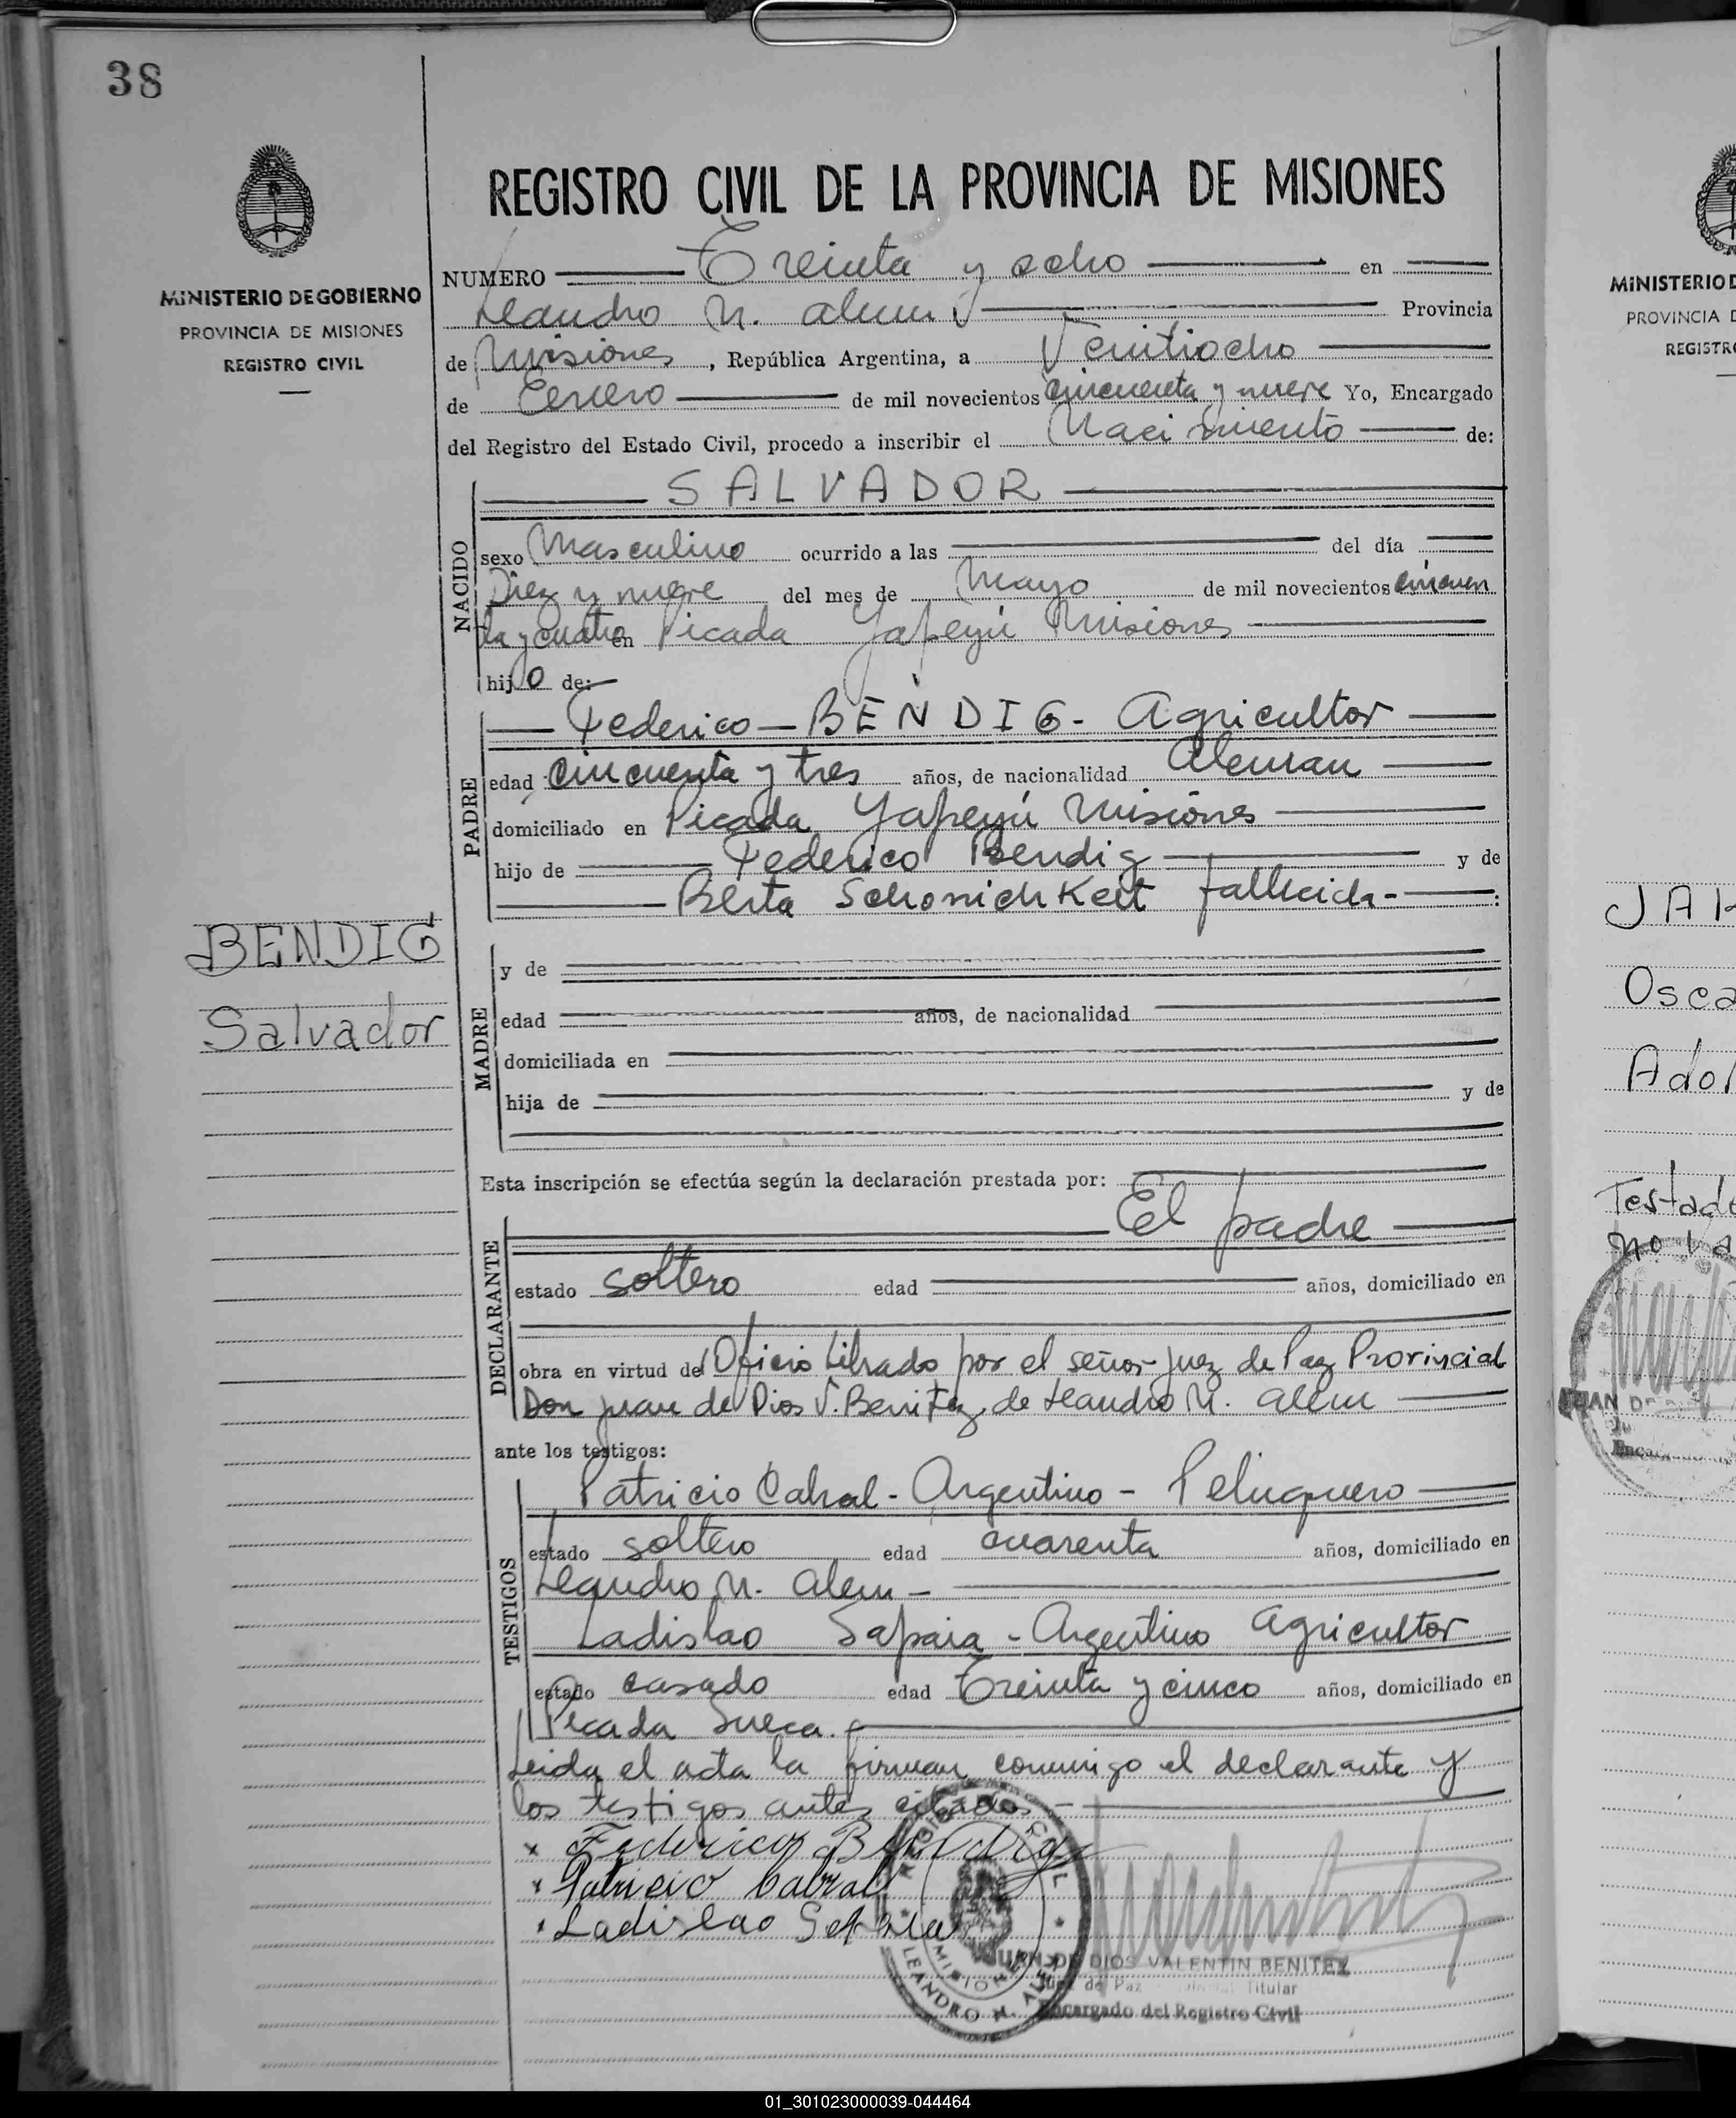 38
MINISTERIO DE GOBIERNO
PROVINCIA DE MISIONES
REGISTRO CIVIL
REGISTRO CIVIL DE LA PROVINCIA DE MISIONES
NUMERO Treinta y ocho en
Leandro N. Alem Provincia
de Misiones, República Argentina, a Veintiocho
de Enero de mil novecientos cincuenta y nueve Yo, Encargado
del Registro del Estado Civil, procedo a inscribir el Nacimiento de:
NACIDO
SALVADOR
sexo Masculino ocurrido a las del día
Diez y nueve del mes de Mayo de mil novecientos cincuen
ta y cuatro en Picada Yapeyú Misiones
hijo de:
PADRE
Federico - BENDIG - Agricultor
edad cincuenta y tres años, de nacionalidad Aleman
domiciliado en Picada Yapeyú Misiones
hijo de Federico Bendig y de
Berta Schonichkeit fallecida -
BENDIG
Salvador
MADRE
y de
edad años, de nacionalidad
domiciliada en
hija de y de
Esta inscripción se efectúa según la declaración prestada por:
DECLARANTE
El padre
estado soltero edad años, domiciliado en
obra en virtud del Oficio Librado por el señor Juez de Paz Provincial
Don Juan de Dios V. Benitez, de Leandro N. Alem
ante los testigos:
TESTIGOS
Patricio Cabral - Argentino - Peluquero
estado soltero edad cuarenta años, domiciliado en
Leandro N. Alem -
Ladislao Sapaia - Argentino Agricultor
estado casado edad Treinta y cinco años, domiciliado en
Picada Sueca.
Leida el acta la firman conmigo el declarante y
los testigos antes citados -
x Federico Bendig
Patricio Cabral
Ladislao
REGISTRO CIVIL
MISIONES
LEANDRO N. ALEM
JUAN DE DIOS VALENTIN BENITEZ
Juez de Paz Titular
Encargado del Registro Civil
MINISTERIO D
PROVINCIA D
REGISTR
JA
Osca
Ado
Testad
no va
01_301023000039-044464